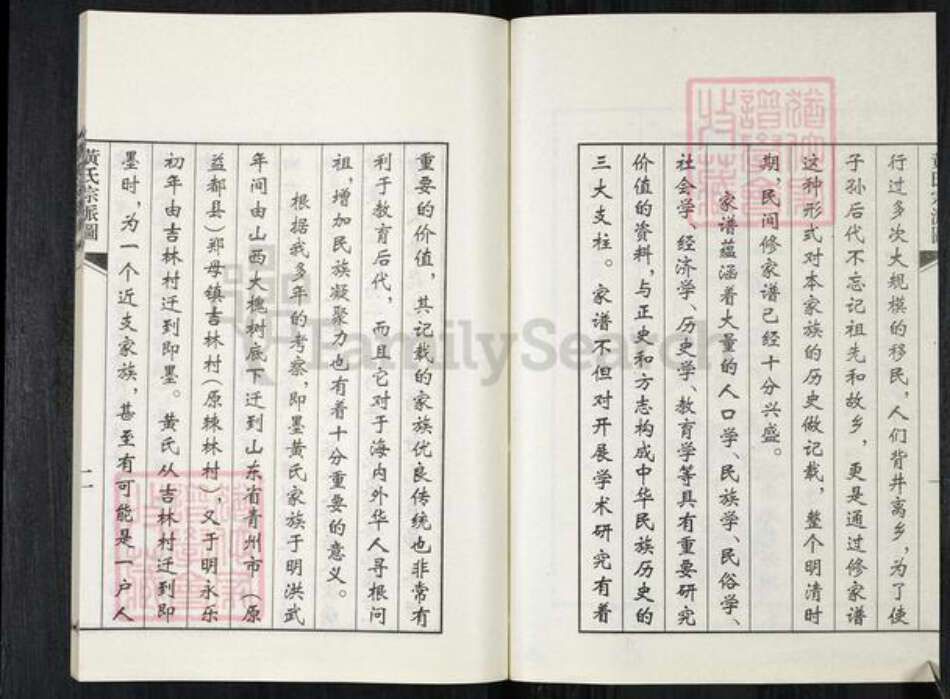 行过多次大规模的移民，人们背井离乡，为了使
子孙后代不忘记祖先和故乡，更是通过修家谱
这种形式对本家族的历史做记载，整个明清时
期，民间修家谱已经十分兴盛。
家谱蕴涵着大量的人口学、民族学、民俗学、
社会学、经济学、历史学、教育学等具有重要研究
价值的资料，与正史和方志构成中华民族历史的
三大支柱。家谱不但对开展学术研究有着
重要的价值，其记载的家族优良传统也非常有
利于教育后代，而且它对于海内外华人寻根问
祖，增加民族凝聚力也有着十分重要的意义。
根据我多年的考察，即墨黄氏家族于明洪武
年间由山西大槐树底下迁到山东省青州市（原
益都县）郑母镇吉林村（原棘林村），又于明永乐
初年由吉林村迁到即墨。黄氏从吉林村迁到即
墨时，为一个近支家族，甚至有可能是一户人
黃氏宗派圖
二
FamilySearch